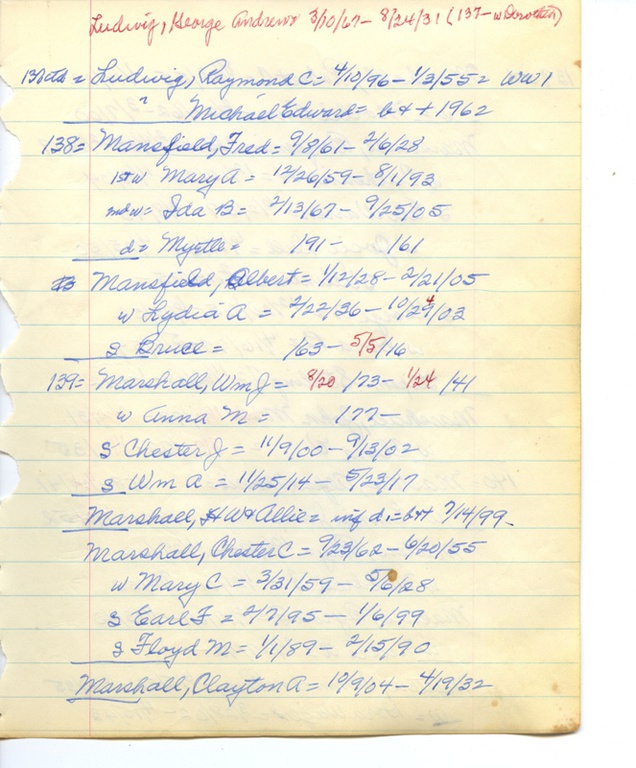 Ludwig, George Andrew 3/10/67 - 8/24/31 (137 - w Dorothea)
Ludwig, Raymond C = 4/10/96 - 1/3/55 = WW1
" Michael Edward = b & + 1962
138 = Mansfield, Fred = 9/8/61 - 2/6/28
1st w Mary A = 12/26/59 - 8/1/93
2nd w = Ida B = 2/13/67 - 9/25/05
d = Myrtle = 191 - 161
Mansfield, Albert = 1/12/28 - 2/21/05
w Lydia A = 2/22/36 - 10/24/03
s Bruce = /63 - 5/5/16
139 = Marshall, Wm J = 8/20 /73 - 1/24 /41
w Anna M = 177 -
s Chester J = 11/9/00 - 9/13/02
s Wm A = 11/25/14 - 5/23/17
Marshall, H W & Allie = inf d. = b + 7/14/99
Marshall, Chester C = 9/23/62 - 6/20/55
w Mary C = 3/31/59 - 5/6/28
s Earl F = 2/7/95 - 1/6/99
s Floyd M = 1/1/89 - 2/15/90
Marshall, Clayton A = 10/9/04 - 4/19/32